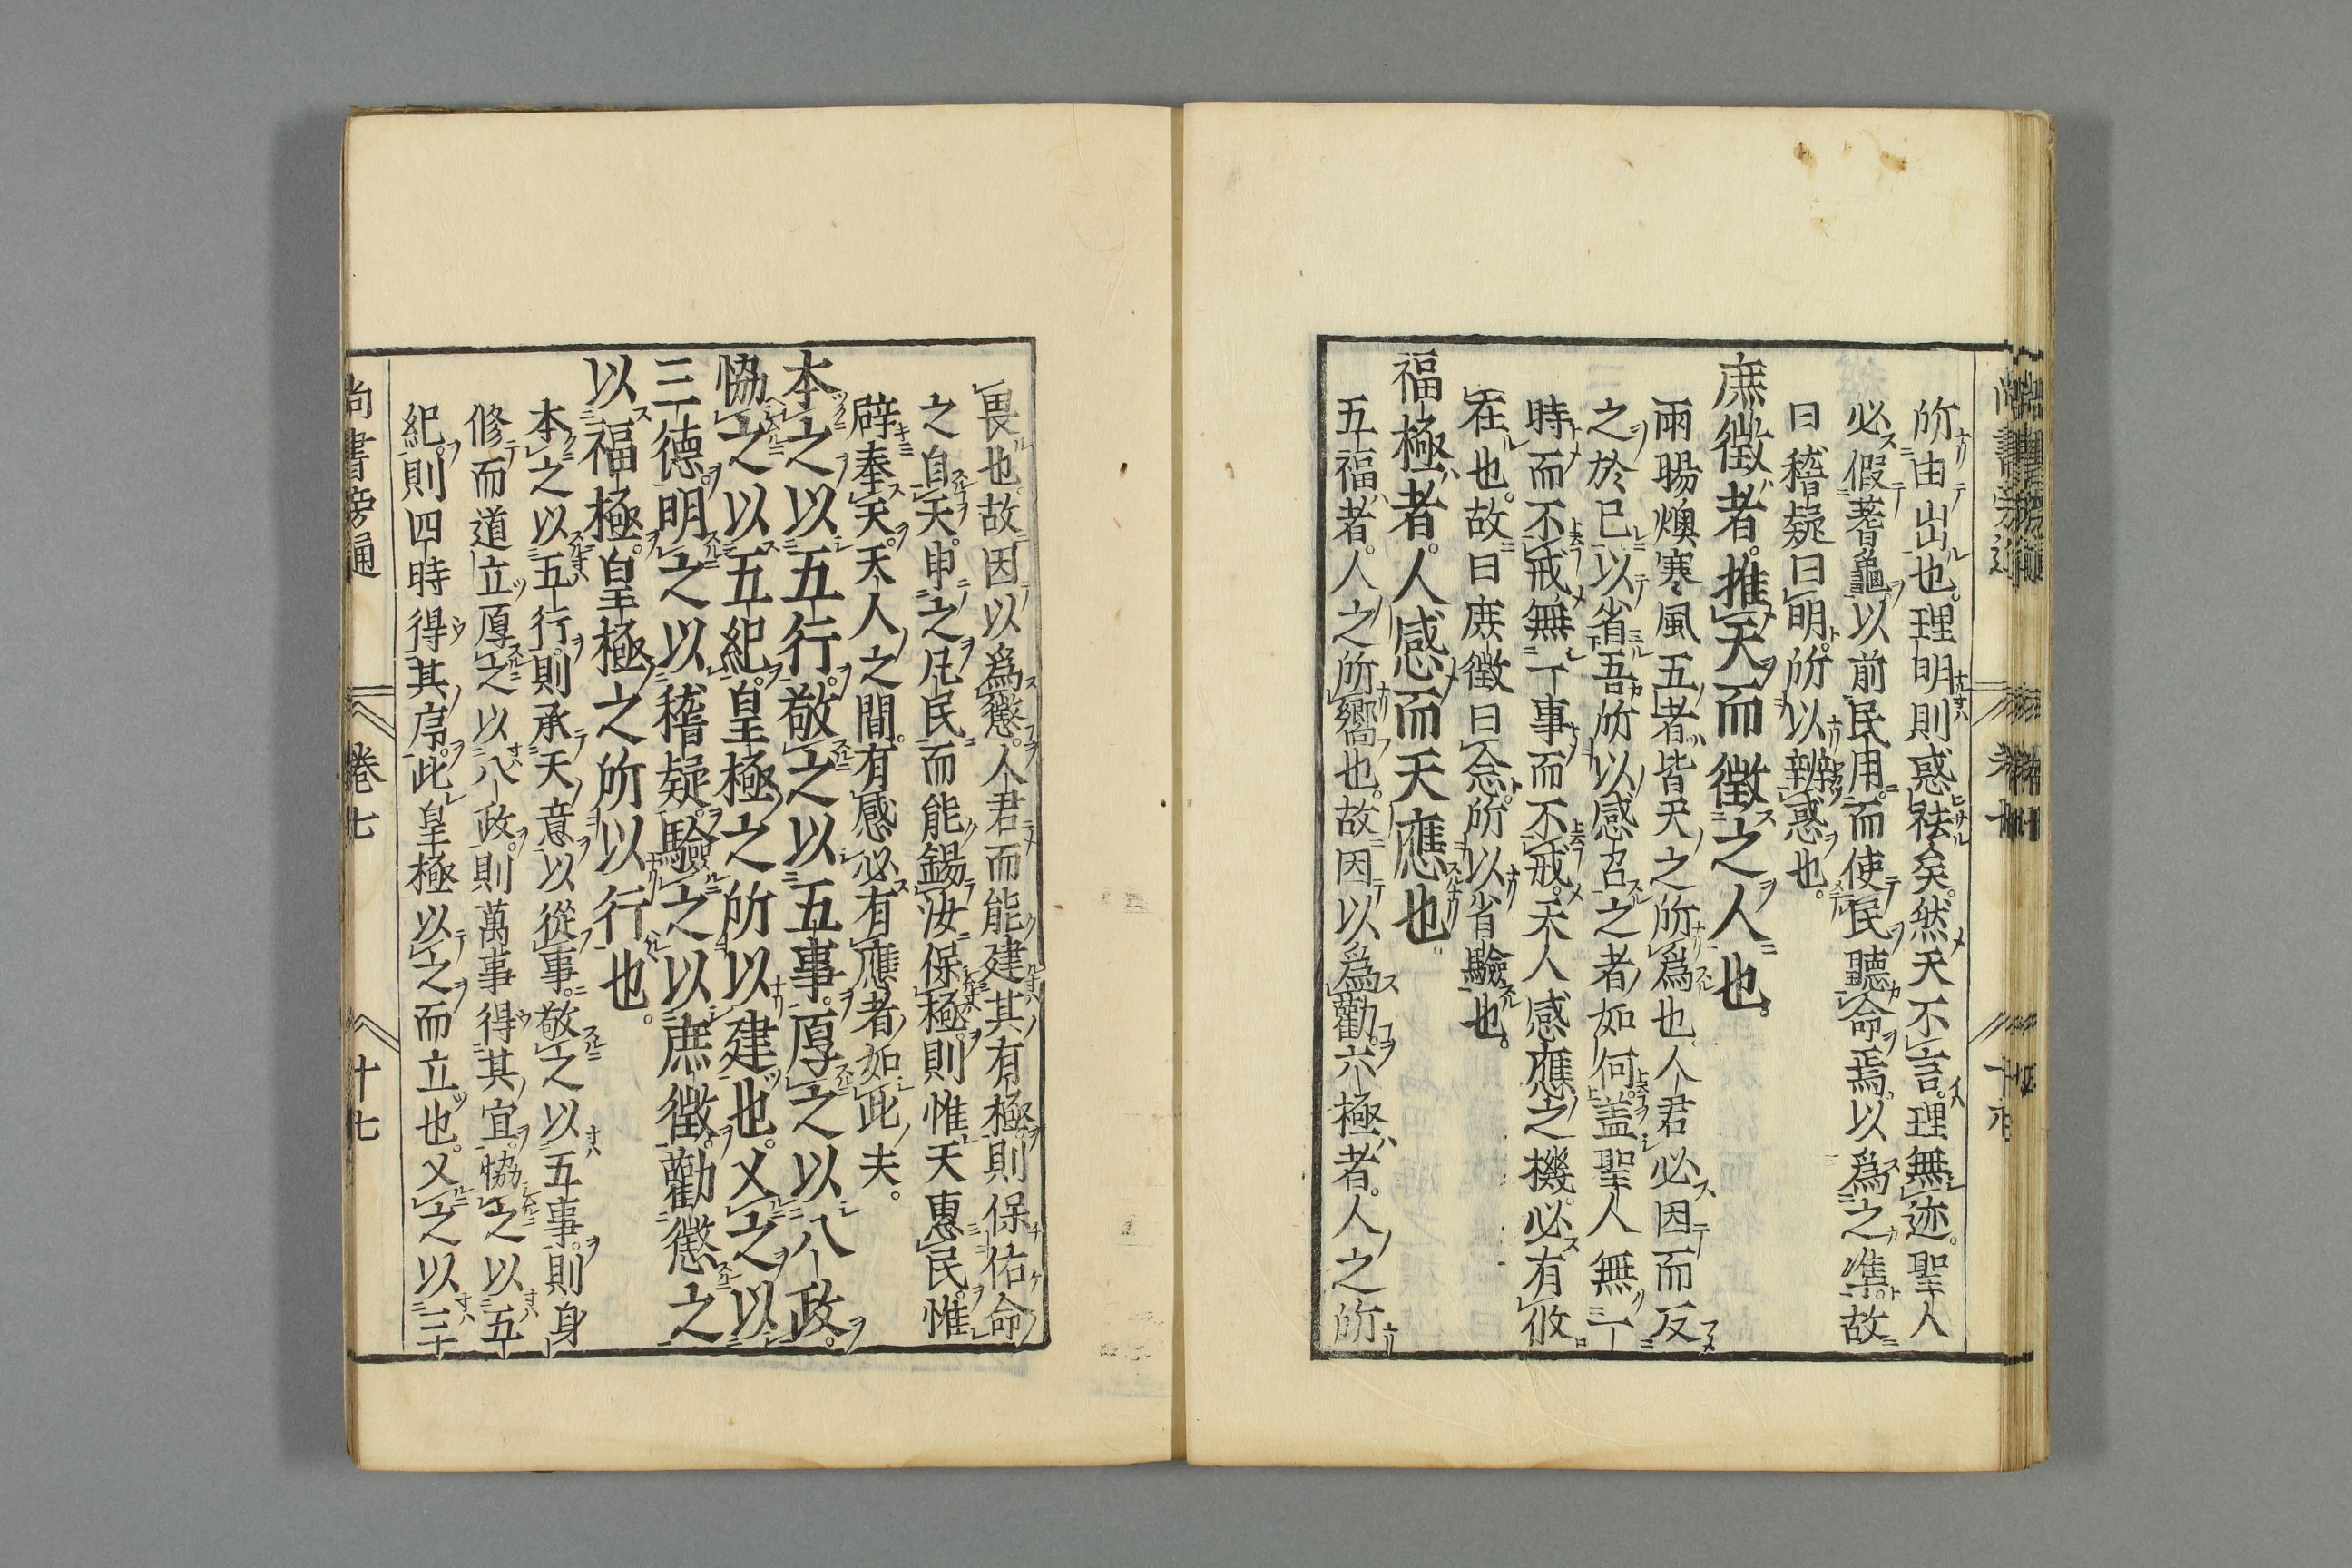 所由出也。理明則惑祛矣。然天不言。理無迹。聖人
必假蓍龜以前民用。而使民聽命焉。以爲之準。故
曰稽疑曰明。所以辨惑也。
庶徵者。推天而徵之人也。
雨暘燠寒風五者皆天之所爲也。人君必因而反
之於已以省吾所以感召之者如何。盖聖人無一
時而不戒。無一事而不戒。天人感應之機。必有攸
在也。故曰庶徵曰念。所以省驗也。
福極者。人感而天應也。
五福者。人之所嚮也。故因以爲勸。六極者。人之所
畏也。故因以爲懲。人君而能建其有極。則保佑命
之自天。申之凡民而能錫汝保極。則惟天惠民。惟
辟奉天。天人之間。有感必有應者如此夫。
本之以五行。敬之以五事。厚之以八政。
協之以五紀。皇極之所以建也。乂之以
三德。明之以稽疑。驗之以庶徵。勸懲之
以福極。皇極之所以行也。
本之以五行。則承天意以從事。敬之以五事。則身
修而道立。厚之以八政。則萬事得其宜。協之以五
紀。則四時得其序。此皇極以之而立也。乂之以三
尚書旁通 卷七 十七